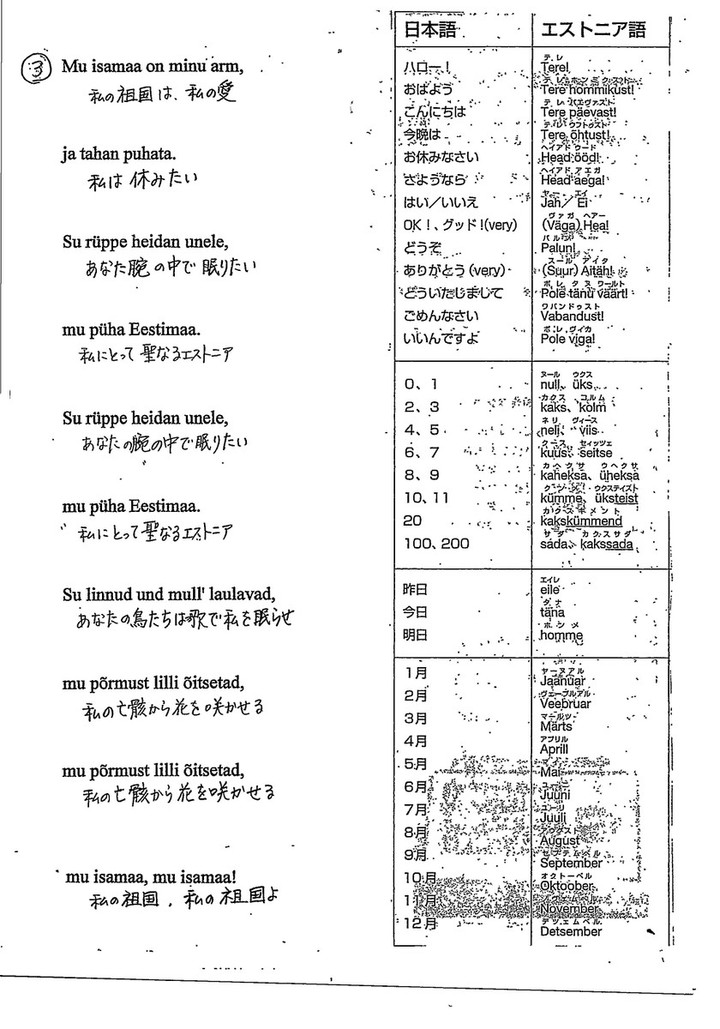 ③ Mu isamaa on minu arm,
私の祖国は、私の愛
ja tahan puhata.
私は 休みたい
Su rüppe heidan unele,
あなた腕の中で 眠りたい
mu püha Eestimaa.
私にとって 聖なるエストニア
Su rüppe heidan unele,
あなたの腕の中で眠りたい
mu püha Eestimaa.
私にとって聖なるエストニア
Su linnud und mull' laulavad,
あなたの鳥たちは歌で私を眠らせ
mu põrmust lilli õitsetad,
私の亡骸から花を咲かせる
mu põrmust lilli õitsetad,
私の亡骸から花を咲かせる
mu isamaa, mu isamaa!
私の祖国，私の祖国よ
日本語 エストニア語
テレ
ハロー！ Tere!
おはよう Tere hommikust!
こんにちは Tere päevast!
今晩は Tere õhtust!
ヘイアド ウード
お休みなさい Head ööd!
ヘイアド アエガ
さようなら Head aega!
ヤー エイ
はい／いいえ Jah／Ei
ヴァガ ヘアー
OK！、グッド！(very) (Väga) Hea!
パルン
どうぞ Palun!
スール アイタ
ありがとう (very) (Suur) Aitäh!
ポレ タヌ ワールト
どういたしまして Pole tänu väärt!
ワバンドゥスト
ごめんなさい Vabandust!
ポレ ヴィカ
いいんですよ Pole viga!
ヌール ウクス
0、1 null、üks
カクス コルム
2、3 kaks、kolm
ネリ ヴィース
4、5 neli、viis
クース セイッツェ
6、7 kuus、seitse
カヘクサ ウヘクサ
8、9 kaheksa、üheksa
10、11 kümme、üksteist
20 kakskümmend
サダ カクスサダ
100、200 sada、kakssada
エイレ
昨日 eile
今日 täna
ホンメ
明日 homme
ヤーヌアル
1月 Jaanuar
2月 Veebruar
マールツ
3月 Märts
アプリル
4月 Aprill
5月 Mai
6月 Juuni
7月 Juuli
8月 August
9月 September
オクトーベル
10月 Oktoober
11月 November
12月 Detsember